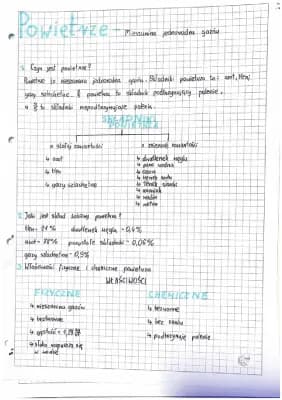 Powietrze - Mieszanina jednorodna gazów
1. Czym jest powietrze?
Powietrze to mieszanina jednorodna gazów. Składniki powietrza to: azot, tlen,
gazy szlachetne. powietrza to składnik podtrzymujący palenie.
to składnik niepodtrzymujący palenie.
SKŁADNIKI
POWIETRZA
o stałej zawartości
o zmiennej zawartości
↳ azot
↳ tlen
↳ gazy szlachetne
↳ dwutlenek węgla
↳ para wodna
↳ ozon
↳ tlenek
↳ tlenek
↳ amoniak
↳ wodór
↳ metan
2. Jaki jest skład powietrza?
tlen - 21% dwutlenek węgla - 0,4%
azot - 78% pozostałe składniki - 0,06%
gazy szlachetne - 0,9%
3. Właściwości fizyczne i chemiczne powietrza
WŁAŚCIWOŚCI
FIZYCZNE
CHEMICZNE
↳ mieszanina gazów
↳ bezbarwne
↳ gęstość =
↳ słabo rozpuszcza się
w wodzie
↳ bezwonne
↳ bez smaku
↳ podtrzymuje palenie